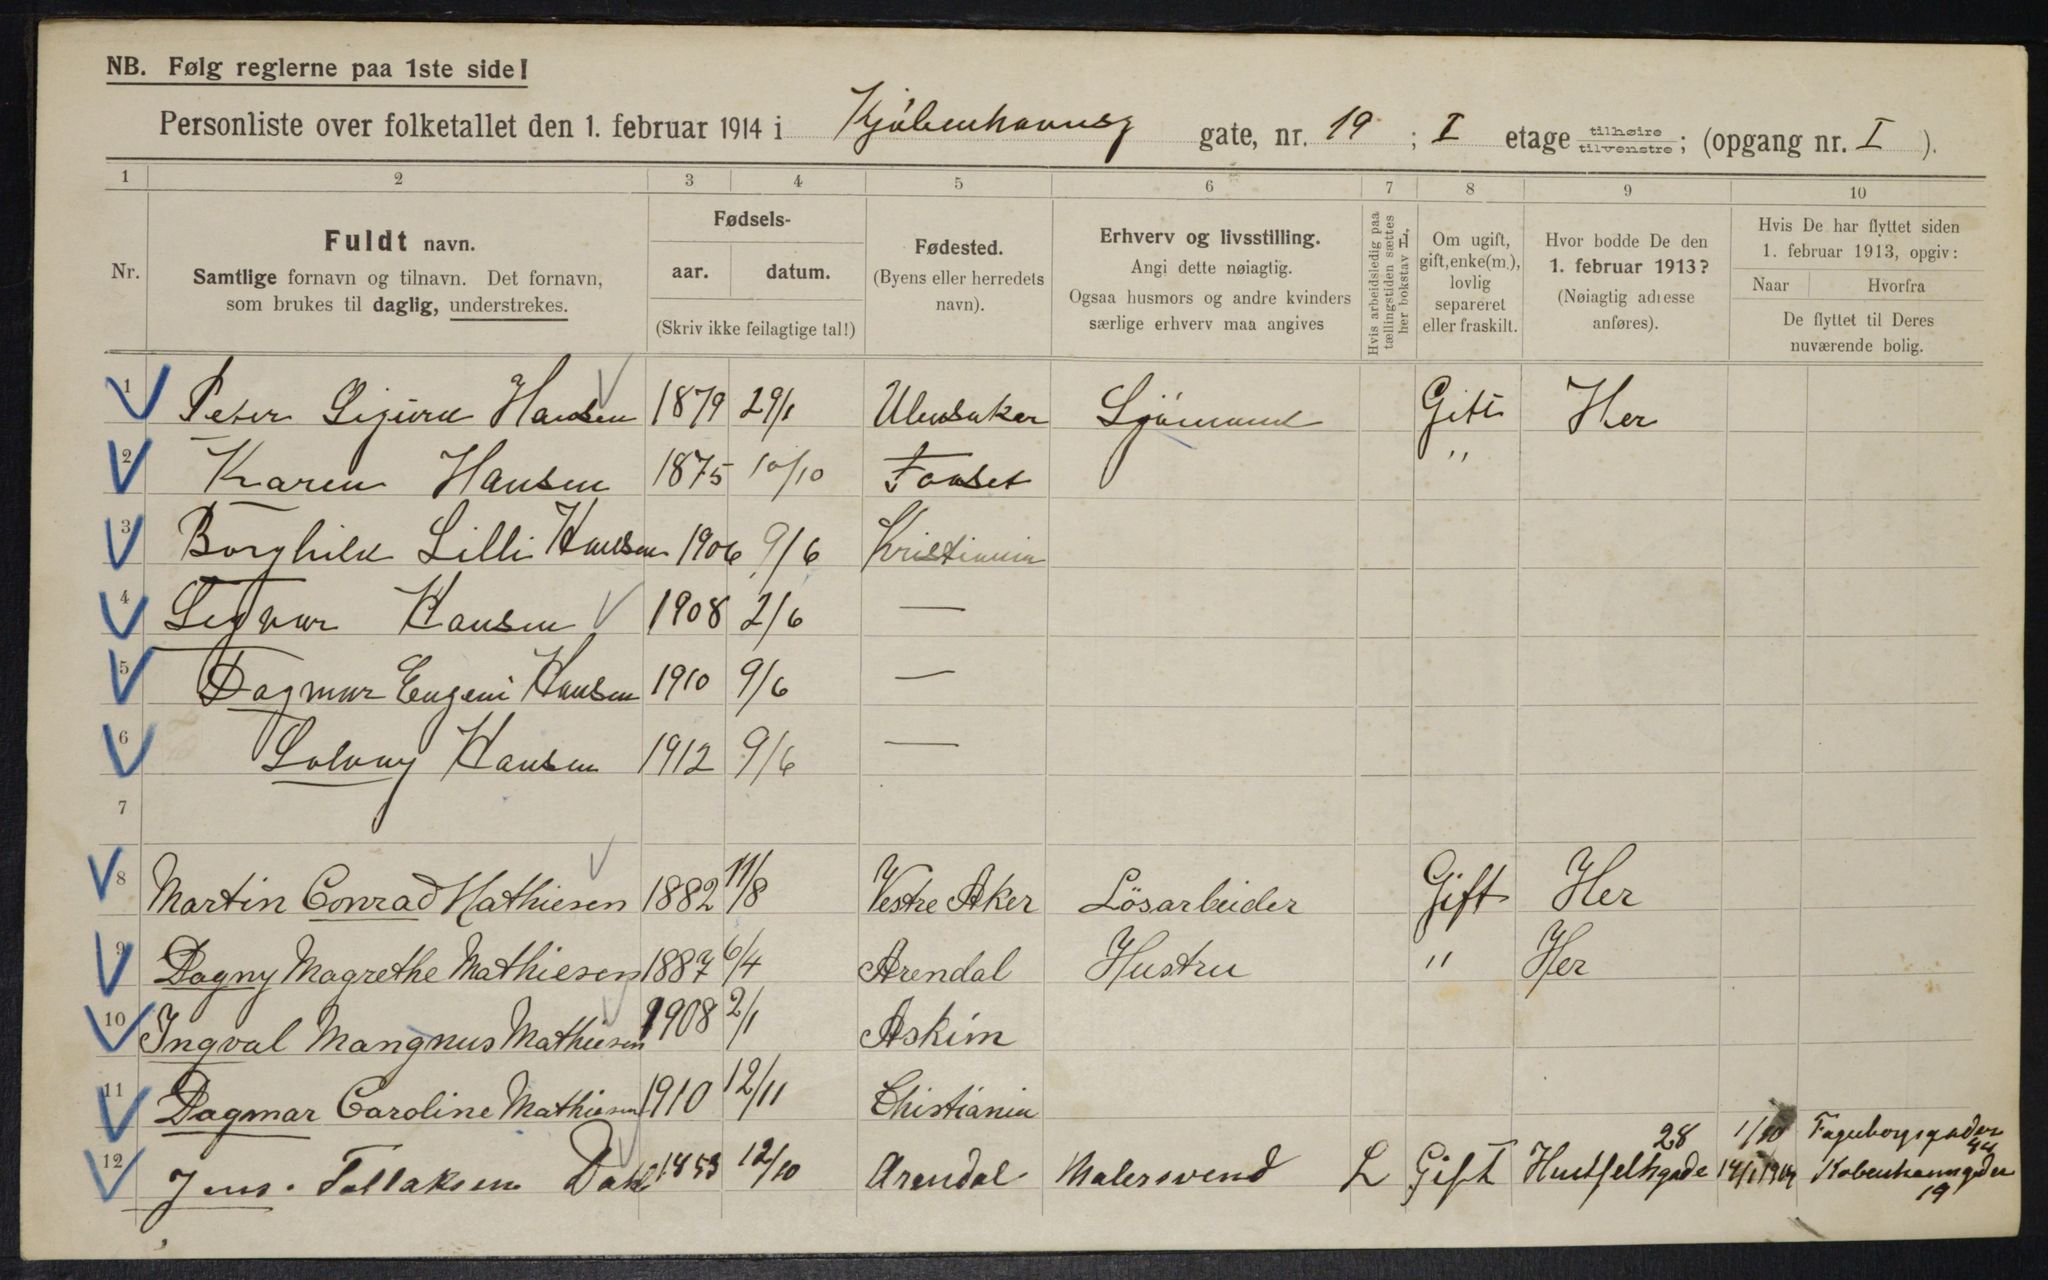 NB. Følg reglerne paa 1ste side!
Personliste over folketallet den 1. februar 1914 i Kjøbenhavnsg gate, nr. 19 ; I etage tilhøire tilvenstre; (opgang nr. I ).
1 2 3 4 5 6 7 8 9 10
Nr.
Fuldt navn.
Samtlige fornavn og tilnavn. Det fornavn,
som brukes til daglig, understrekes.
Fødsels-
aar. datum.
(Skriv ikke feilagtige tal!)
Fødested.
(Byens eller herredets
navn).
Erhverv og livsstilling.
Angi dette nøiagtig.
Ogsaa husmors og andre kvinders
særlige erhverv maa angives
Hvis arbeidsledig paa
tællingstiden sættes
her bokstav L,
Om ugift,
gift, enke(m.),
lovlig
separeret
eller fraskilt.
Hvor bodde De den
1. februar 1913?
(Nøiagtig adresse
anføres).
Hvis De har flyttet siden
1. februar 1913, opgiv:
Naar Hvorfra
De flyttet til Deres
nuværende bolig.
1 Peter Sigurd Hansen 1879 29/1 Ulensaker Sjömand Gift Her
2 Karen Hansen 1875 10/10 Faaset "
3 Borghild Lilli Hansen 1906 9/6 Kristiania
4 Sigvar Hansen 1908 2/6 —
5 Dagmar Eugeni Hansen 1910 9/6 —
6 Solvay Hansen 1912 9/6 —
7
8 Martin Conrad Mathiesen 1882 11/8 Vestre Aker Lösarbeider Gift Her
9 Dagny Magrethe Mathiesen 1887 6/4 Arendal Hustru " Her
10 Ingval Mangnus Mathiesen 1908 2/1 Askim
11 Dagmar Caroline Mathiesen 1910 12/11 Chistiania
28 1/10 Fageborggaden 44
12 Jens. Tollaksen Dahl 1853 12/10 Arendal Malersvend L Gift Huitfeltsgade 14/1 1914 Kobenhavngaden
19